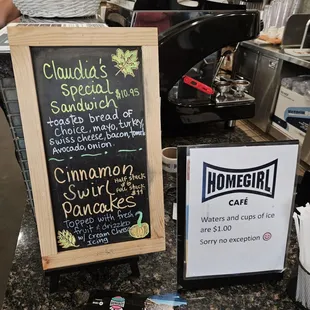 Claudia's
Special
Sandwich
$10.95
toasted bread of
choice, mayo, turkey,
Swiss cheese, bacon, tomato
Avocado, onion.
Cinnamon
Swirl
Pancakes
Half stack
Full stack
Topped with fresh
fruit & drizzled
w/ Cream Cheese
Icing
HOMEGIRL
CAFÉ
Waters and cups of ice
are $1.00
Sorry no exception